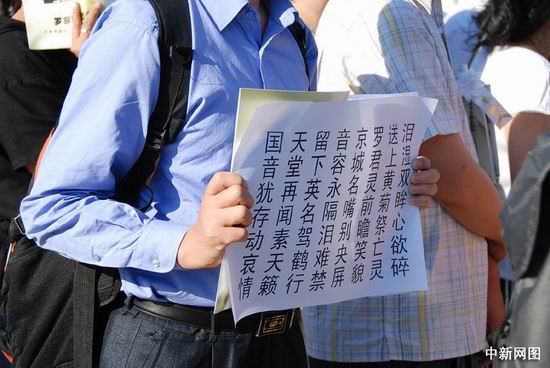 泪湿双眸心欲碎
送上黄菊祭亡灵
罗君灵前瞻笑貌
京城名嘴别央屏
音容永隔泪难禁
留下英名驾鹤行
天堂再闻素天籁
国音犹存动哀情
罗
中新网图